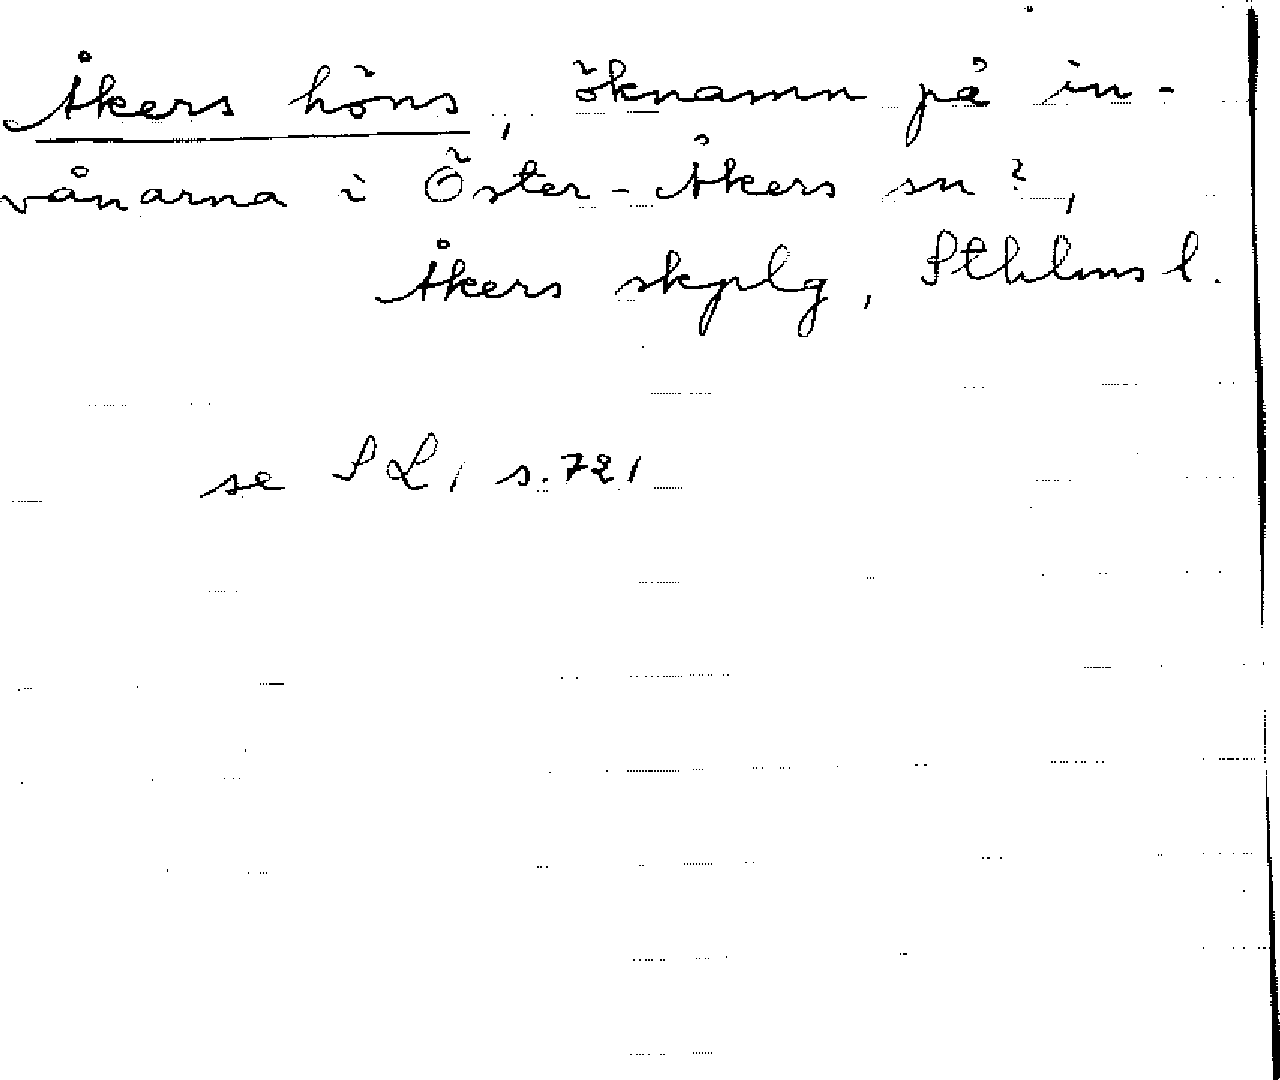 Åkers höns, öknamn på in-
vånarna i Öster-Åkers sn?,
Åkers skplg, Sthlms l.
se SL 1 s. 721